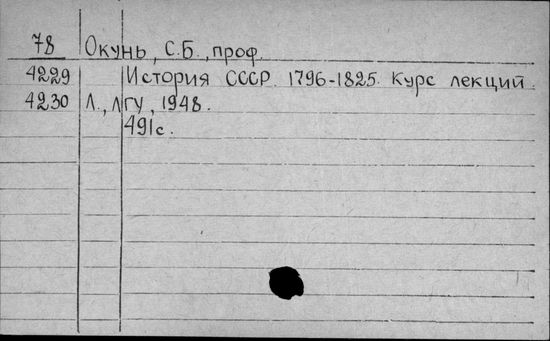 78 Окунь, С.Б., проф.
4229 История СССР. 1796-1825. Курс лекций.
4230 Л., ЛГУ, 1948.
491с.